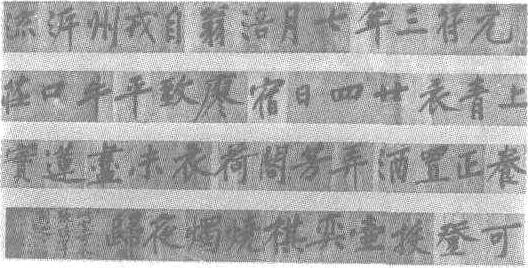 元符三年七月涪翁自戎州泝流
上青衣廿四日宿廖致平牛口莊
養正置酒弄芳閣荷衣未盡蓮實
可登投壺弈棋燒燭夜歸